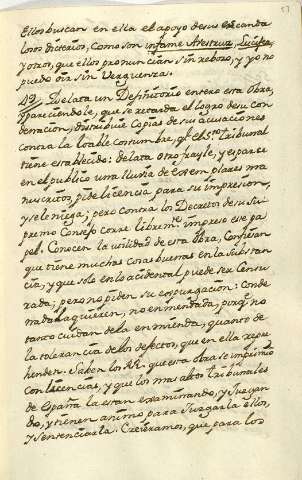 57
Ellos buscan en ella el apoyo de sus escanda
losos dicterios, como son infame Avestruz, Lucifer,
y otros, que ellos pronuncian sin rebozo, y yo no
puedo oir sin verguenza.
Delata un Definitorio entero esta Obra,
y pareciendole, que se retarda el logro de su con
denacion, distribuie Copias de sus acusaciones
contra la loable costumbre, q.e el S.to Tribunal
tiene establecido: delata otro frayle, y esparce
en el publico una lluvia de Exemplares ma
nuscritos, pide licencia para su impresion,
y se le niega; pero contra los Decretos de su Su
premo Consejo corre librem.te impreso ese pa
pel. Conocen la utilidad de esta obra, Confiesan
que tiene muchas cosas buenas en la Substan
cia, y que solo en lo accidental puede ser Censu
rada; pero no piden su expurgacion: conde
nada la quieren, no enmendada, porq.e no
tanto cuidan de la enmienda, quanto de
la tolerancia de los defectos, que en ella repre
henden. Saben los RR. que esta obra se imprimió
con licencias, y que los mas altos tribunales
de España la estan examinando, y Juzgan
do, y tienen animo para Juzgarla ellos,
y Sentenciarla. Creeramos, que para los